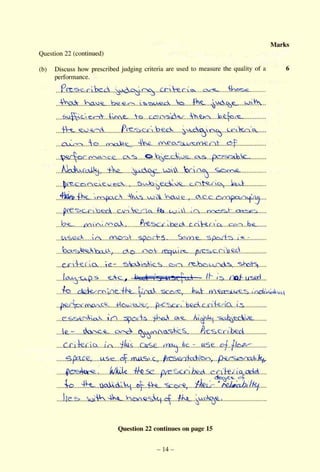 Marks
Question 22 (continued)
(b) Discuss how prescribed judging criteria are used to measure the quality of a 6
performance.
Prescribed judging criteria are those
that have been issued to the judge with
sufficient time to consider them before
the event. Prescribed judging criteria
aim to make the measurement of
performance as objective as possible.
Naturally, the judge will bring some
preconceived, subjective criteria, but
the impact this will have, accompanying
prescribed criteria will in most cases
be minimal. Prescribed criteria can be
used in most sports. Some sports ie -
basketball, do not require prescribed
criteria ie - statistics on rebounds, shots,
layups etc, It is not used
to determine the final score, but measures individual
performance. However, prescribed criteria is
essential in sports that are highly subjective
ie - dance and gymnastics. Prescribed
criteria in this case may be - use of floor
space, use of music, presentation, personality,
posture. While these prescribed criteria add
to the validity of the score, their degree of reliability
lies with the honesty of the judge.
Question 22 continues on page 15
– 14 –